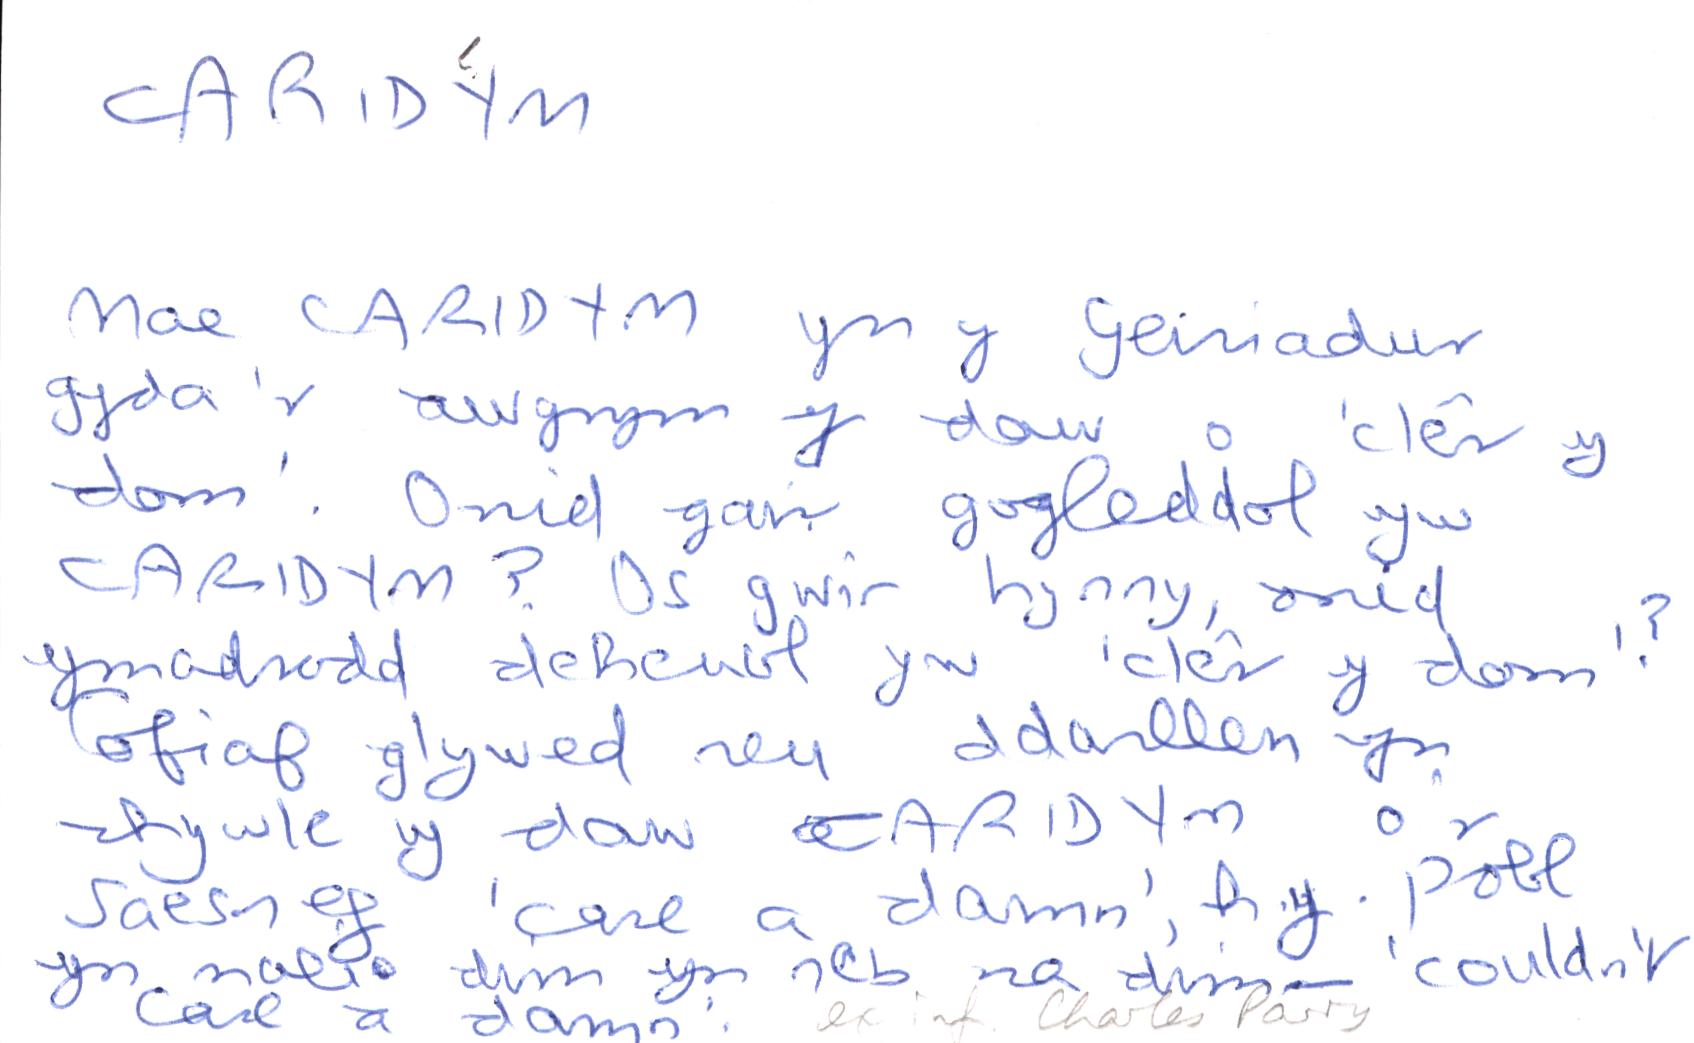 CARIDYM
Mae CARIDYM yn y Geiriadur
gyda'r awgrym y daw o 'clêr y
dom'. Onid gair gogleddol yw
CARIDYM? Os gwir hynny, onid
ymadrodd deheuol yw 'clêr y dom'?
Cofiaf glywed neu ddarllen yn
rhywle y daw CARIDYM o'r
Saesneg 'care a damn', h.y. pobl
yn malio dim yn neb na dim – 'couldn't
care a damn'. ex inf. Charles Parry